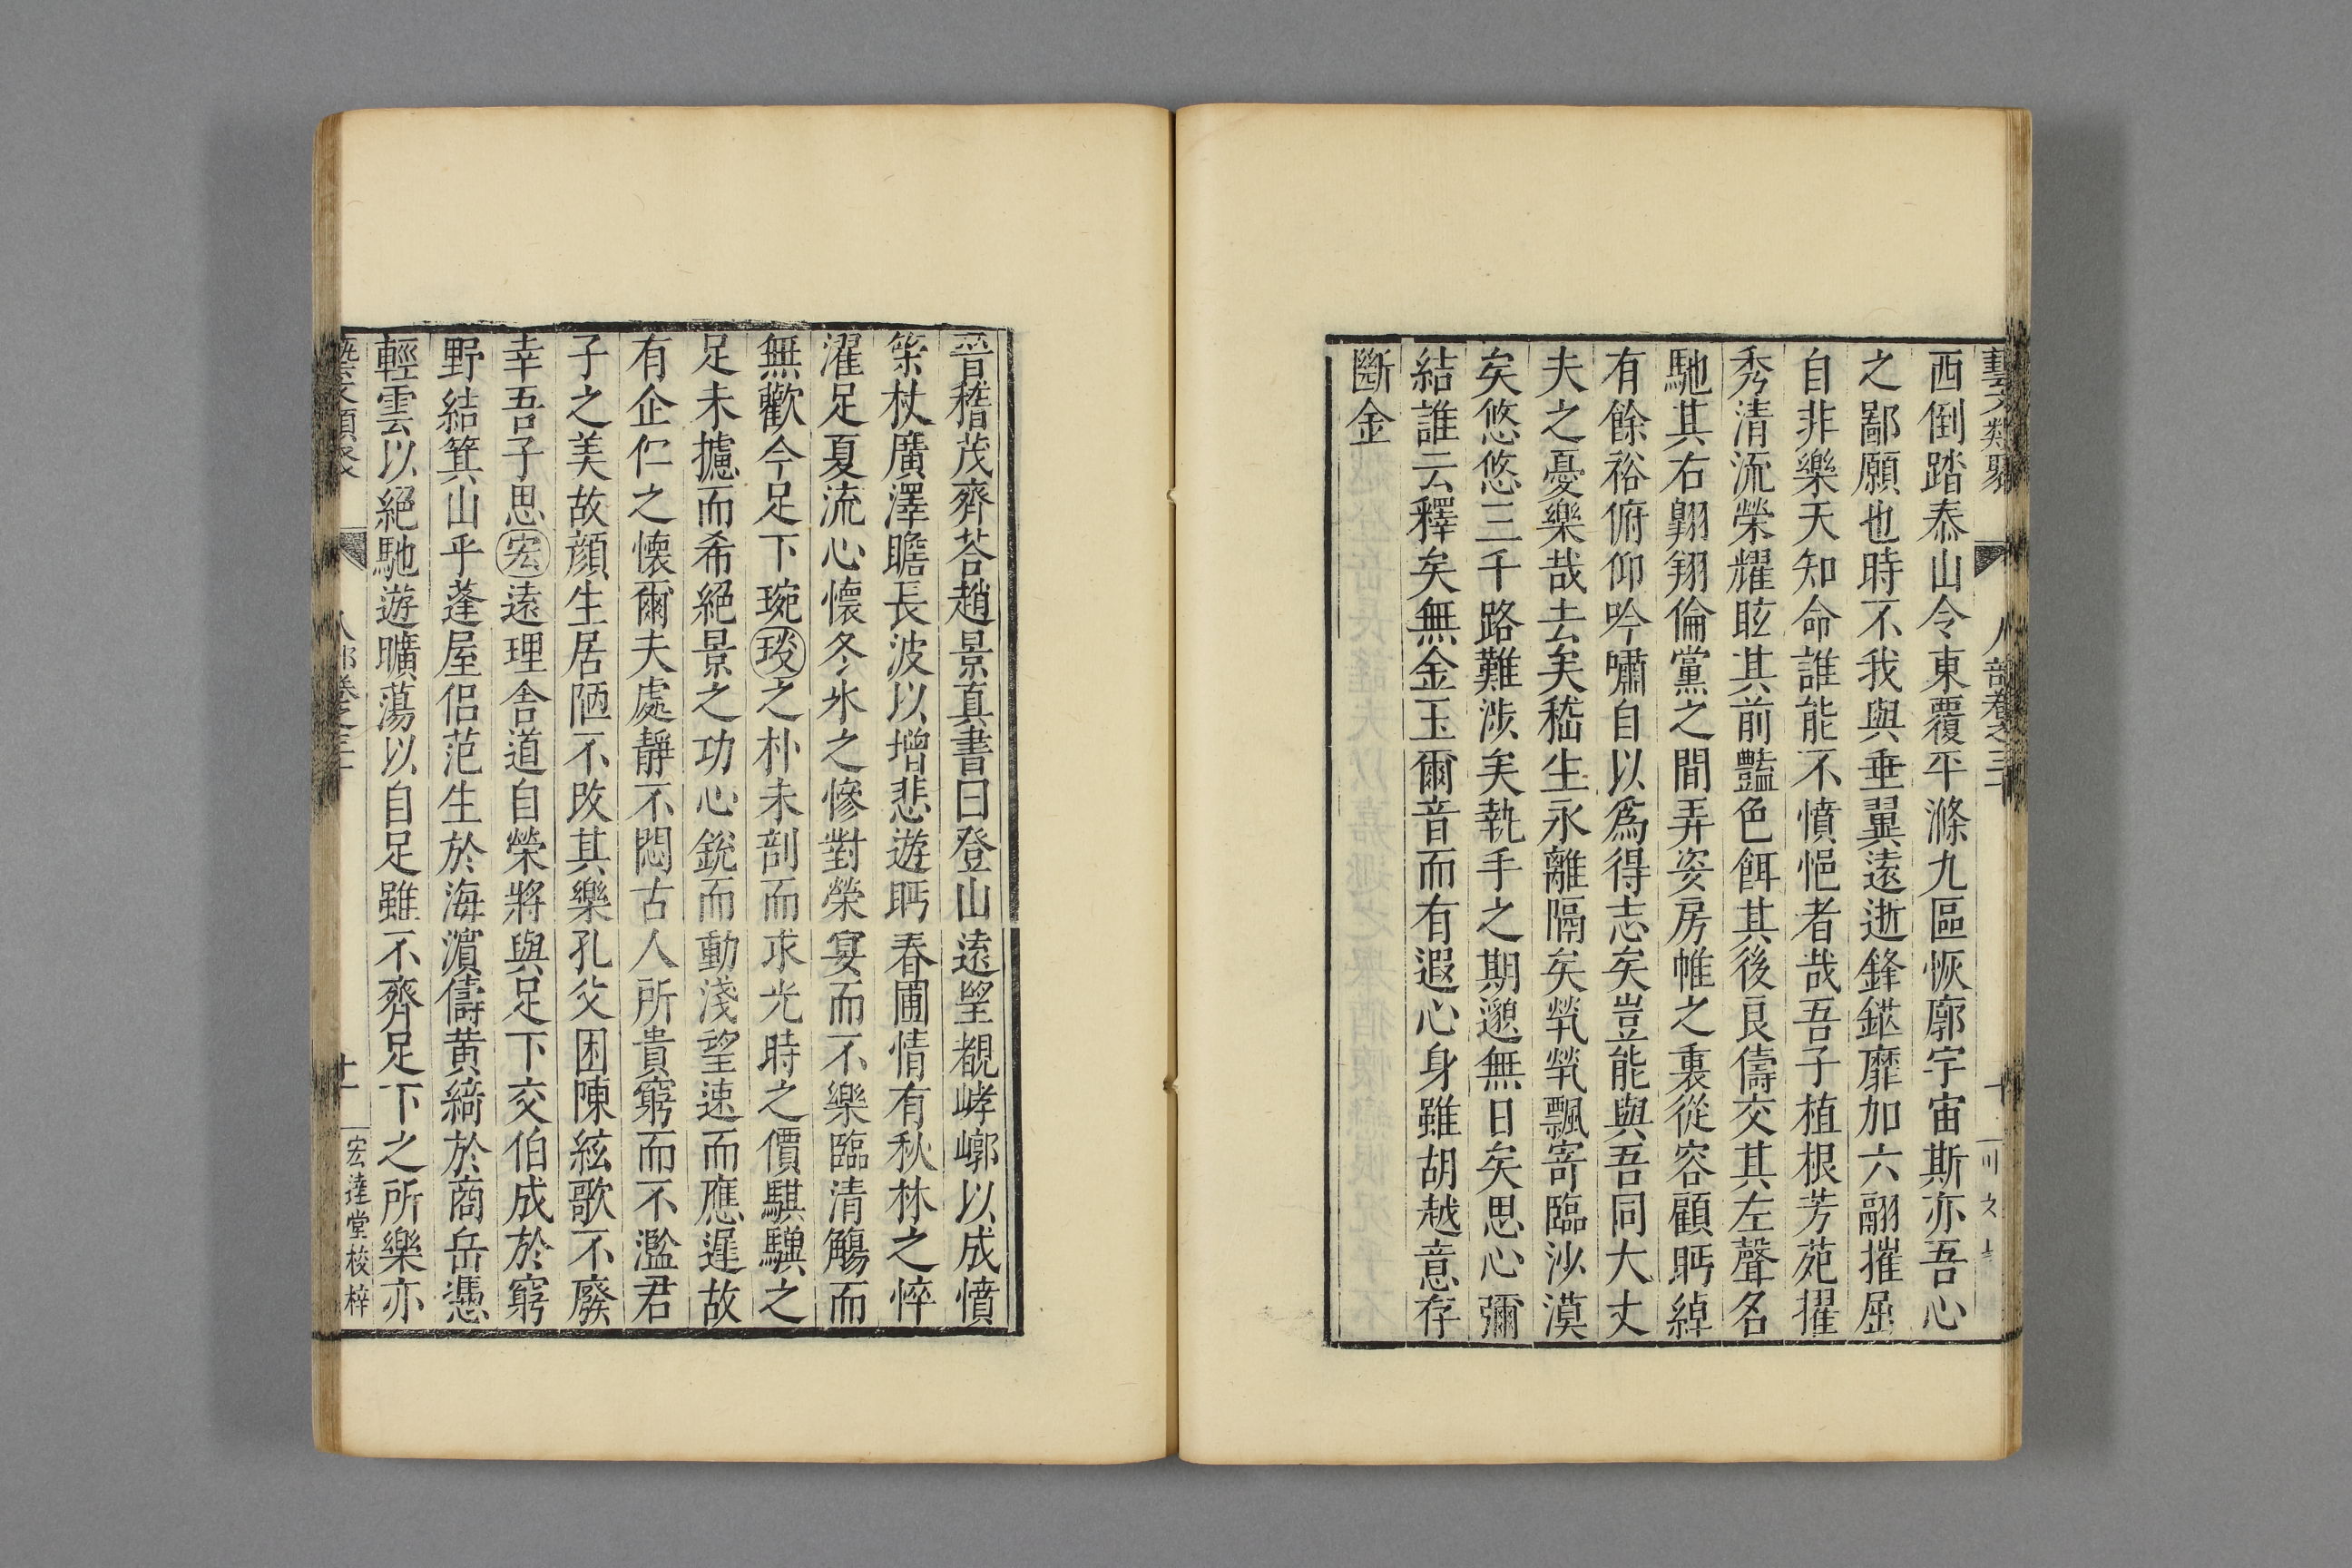 西倒踏泰山令東覆平滌九區恢廓宇宙斯亦吾心
之鄙願也時不我與垂翼遠逝鋒鉅靡加六翮摧屈
自非樂天知命誰能不憤悒者哉吾子植根芳苑擢
秀清流榮耀眩其前豔色餌其後良儔交其左聲名
馳其右翺翔倫黨之間弄姿房帷之裏從容顧眄綽
有餘裕俯仰吟嘯自以爲得志矣豈能與吾同大丈
夫之憂樂哉去矣嵇生永離隔矣煢煢飄寄臨沙漠
矣悠悠三千路難涉矣執手之期邈無日矣思心彌
結誰云釋矣無金玉爾音而有遐心身雖胡越意存
斷金
晉稽茂齊荅趙景真書曰登山遠望覩崝嶂以成憤
策杖廣澤瞻長波以增悲遊眄春圃情有秋林之悴
濯足夏流心懷冬氷之慘對榮宴而不樂臨清觴而
無歡今足下琬琰之朴未剖而求光時之價騏驥之
足未攄而希絕景之功心銳而動淺望速而應遲故
有企佇之懷爾夫處靜不悶古人所貴窮而不濫君
子之美故顏生居陋不改其樂孔父困陳絃歌不廢
幸吾子思宏遠理舍道自榮將與足下交伯成於窮
野結箕山乎蓬屋侶范生於海濵儔黃綺於商岳憑
輕雲以絕馳遊曠蕩以自足雖不齊足下之所樂亦
宏達堂校梓